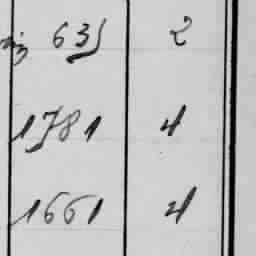 635 2
1781 4
1661 4